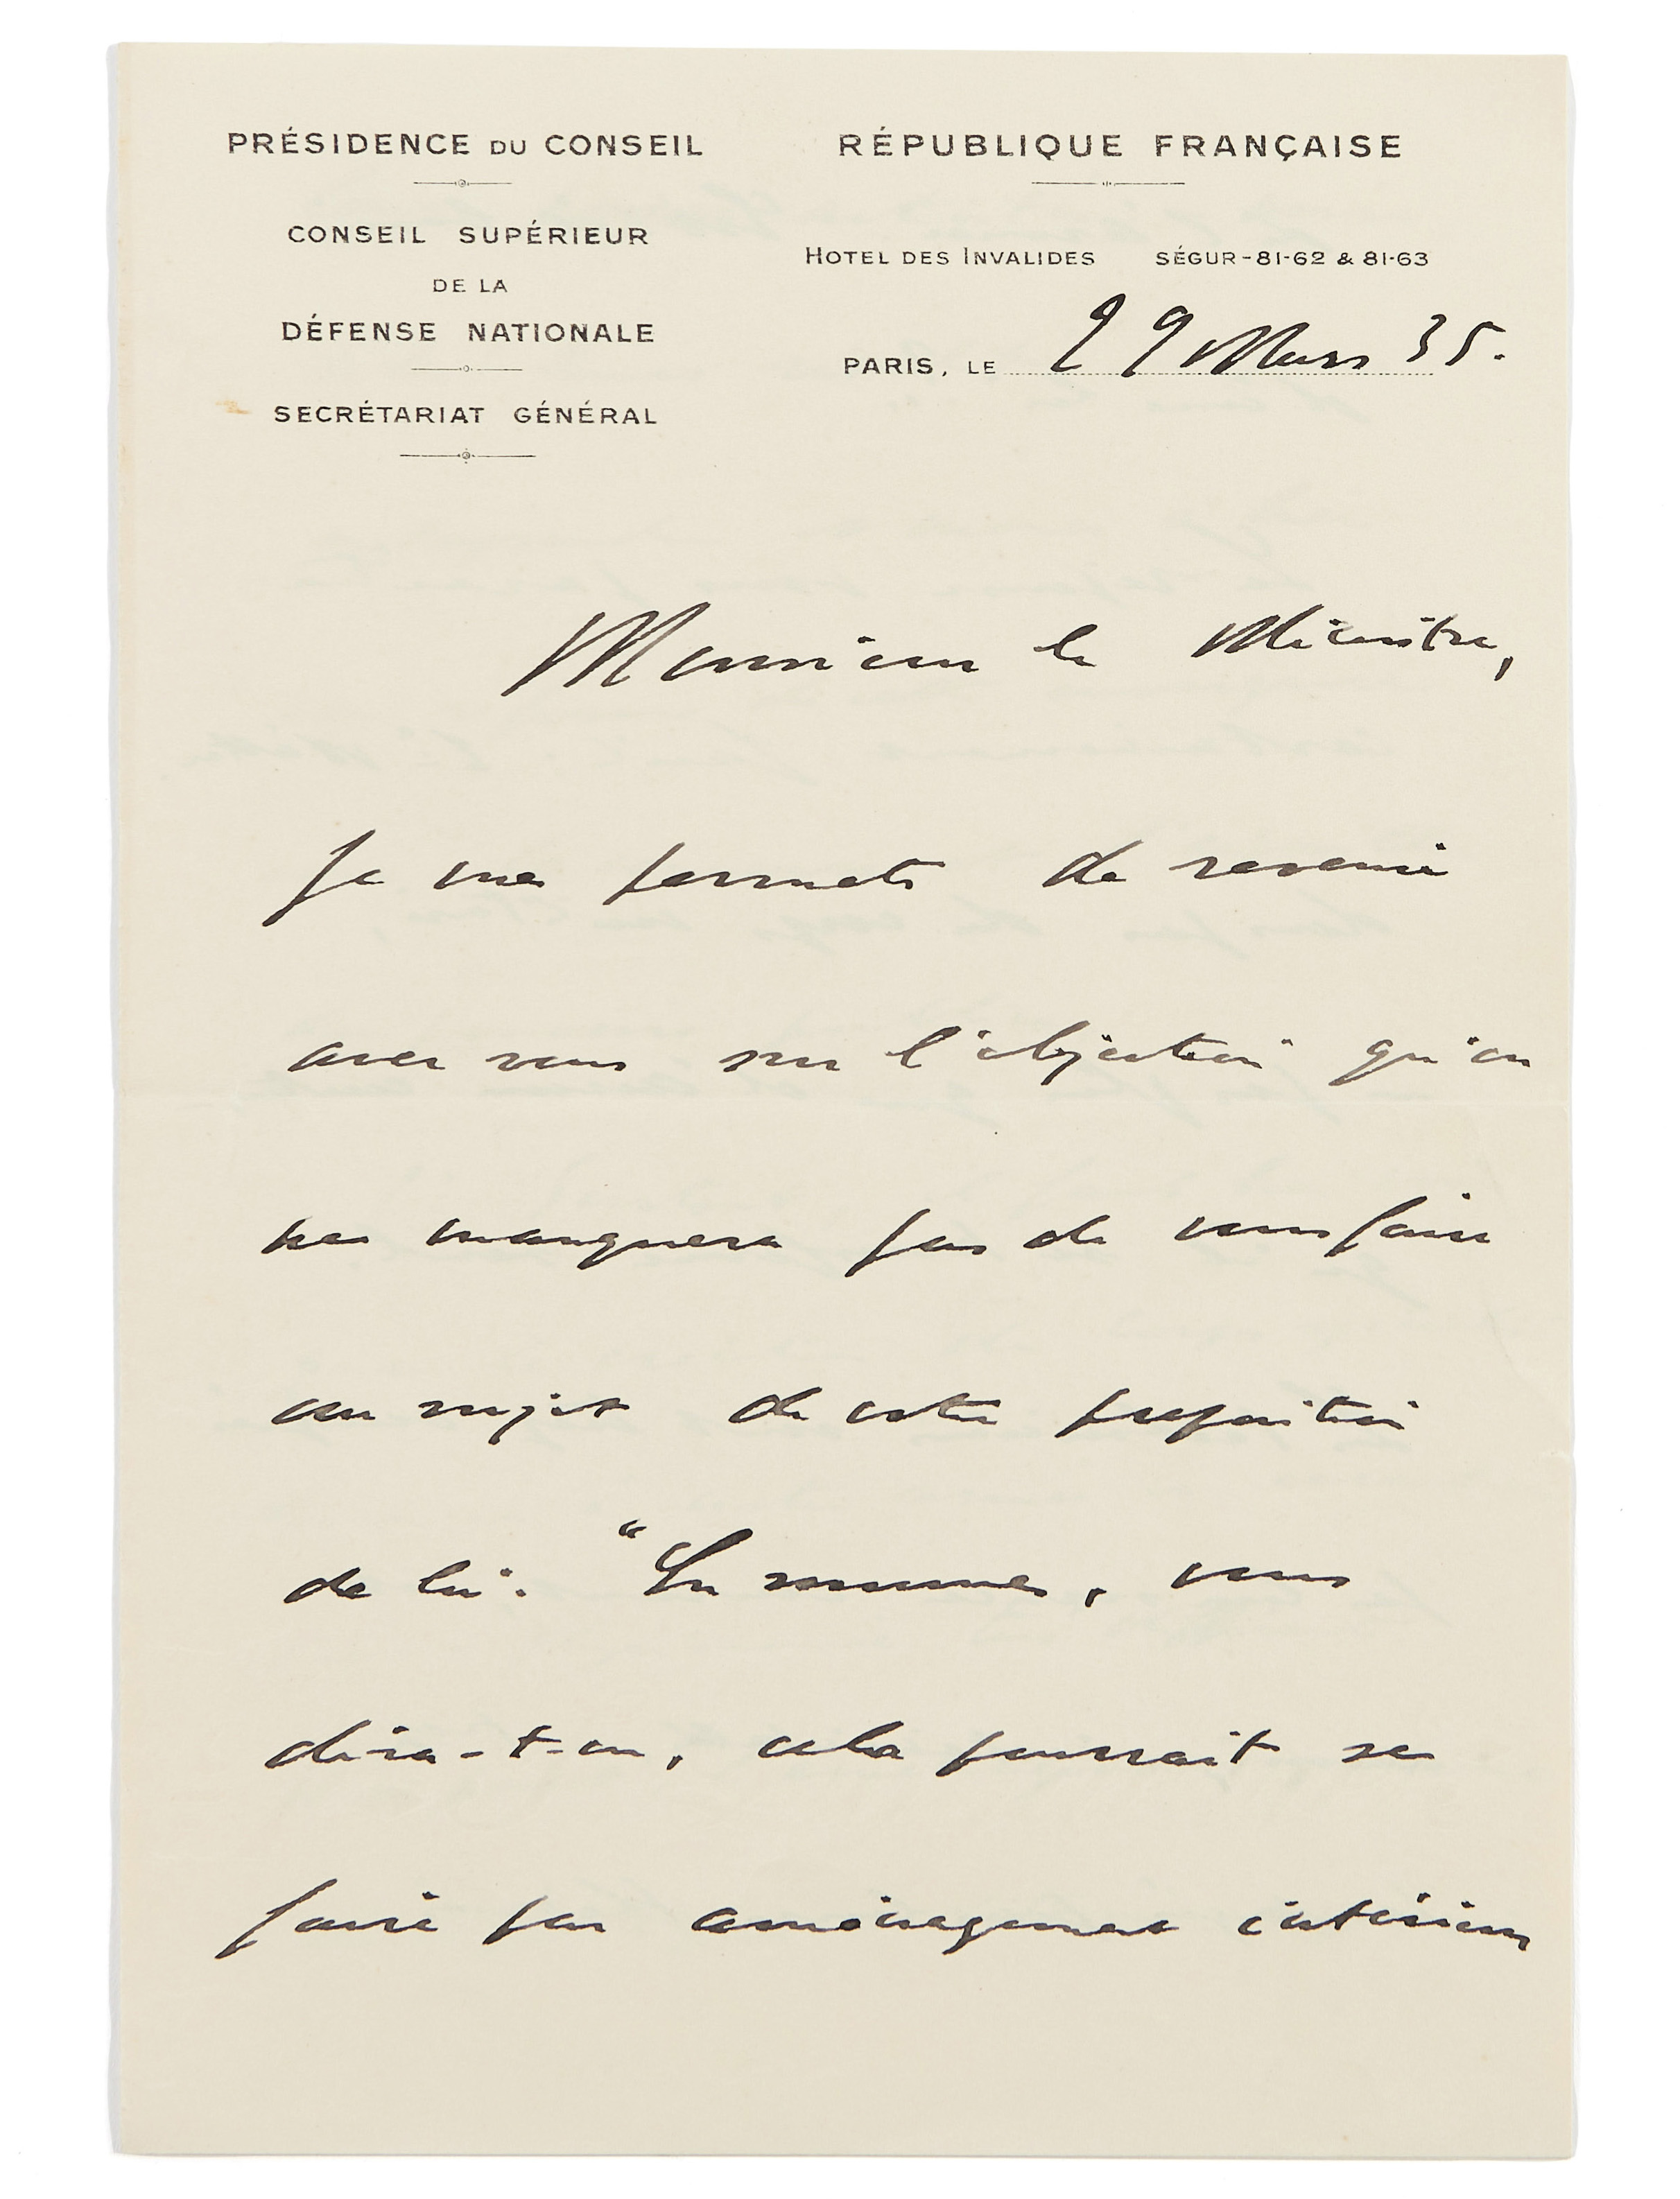 PRÉSIDENCE DU CONSEIL
CONSEIL SUPÉRIEUR
DE LA
DÉFENSE NATIONALE
SECRÉTARIAT GÉNÉRAL
RÉPUBLIQUE FRANÇAISE
HOTEL DES INVALIDES SÉGUR-81-62 & 81-63
PARIS, LE 29 Mars 35.
Monsieur le Ministre,
Je me permets de revenir
avec vous sur l'objection qu'on
ne manquera pas de vous faire
au sujet de votre proposition
de loi. "En somme, vous
dira-t-on, cela pourrait se
faire par aménagement intérieur